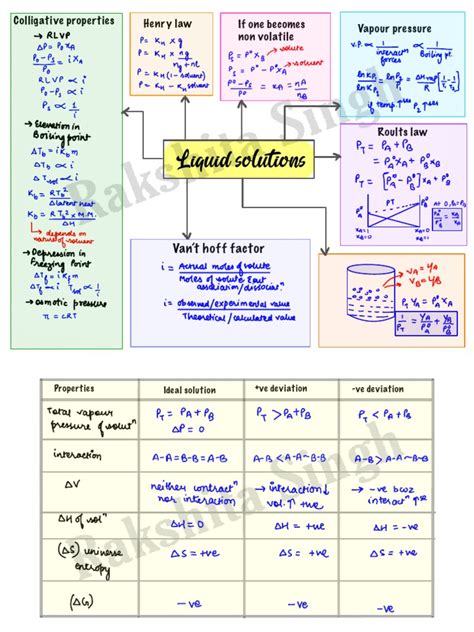 Colligative properties
→ RLVP
ΔP = P₀xₐ
P₀-Pₛ/P₀ = ixₐ
RLVP ∝ i
P₀-Pₛ ∝ i
Pₛ ∝ 1/i
→ Elevation in
Boiling point
ΔTb = iKbm
ΔTb ∝ i
ΔTsoln ∝ i
Kb = RTb²/Δlatent heat
Kb = RTb² × M.M./ΔH
↳ depends on
nature of solvent
→ Depression in
Freezing Point
ΔTf = iKfm
ΔTf ∝ i
→ osmotic pressure
π = CRT
Henry law
P = KH × g
P = KH × ng/ng+nl
P = KH (1-solvent)
P = KH - KH solvent
If one becomes
non volatile
→ solute
Pₛ = P°XB
→ solvent
Vapour pressure
V.P. ∝ 1/interaction forces ∝ 1/Boiling pt.
if temp ↑ses
Roults law
PT = PA + PB
= P°AXA + P°BXB
PT = [P°A - P°B] XA + P°B
PT
XA=1
XB=0
XA=0
XB=1
Liquid solutions
Van't hoff factor
i = Actual moles of solute/moles of solute b4 association/dissociⁿ
i = observed/experimental value/Theoretical/calculated value
VA = YA
VB = YB
PT YA = P°A XA
1/PT = YA/P°A + YB/P°B
Rakshita Singh
Properties Ideal solution +ve deviation -ve deviation
Total vapour pressure of solutⁿ PT = PA + PB ΔP = 0 PT > PA + PB PT < PA + PB
interaction A-A = B-B = A-B A-B < A-A ~ B-B A-B > A-A ~ B-B
ΔV neither contractⁿ nor interaction → interaction↓ vol. ↑ +ve → -ve bcoz interactⁿ ↑se
ΔH of solⁿ ΔH = 0 ΔH = +ve ΔH = -ve
(ΔS) universe entropy ΔS = +ve ΔS = +ve ΔS = +ve
(ΔG) -ve -ve -ve
Rakshita Singh